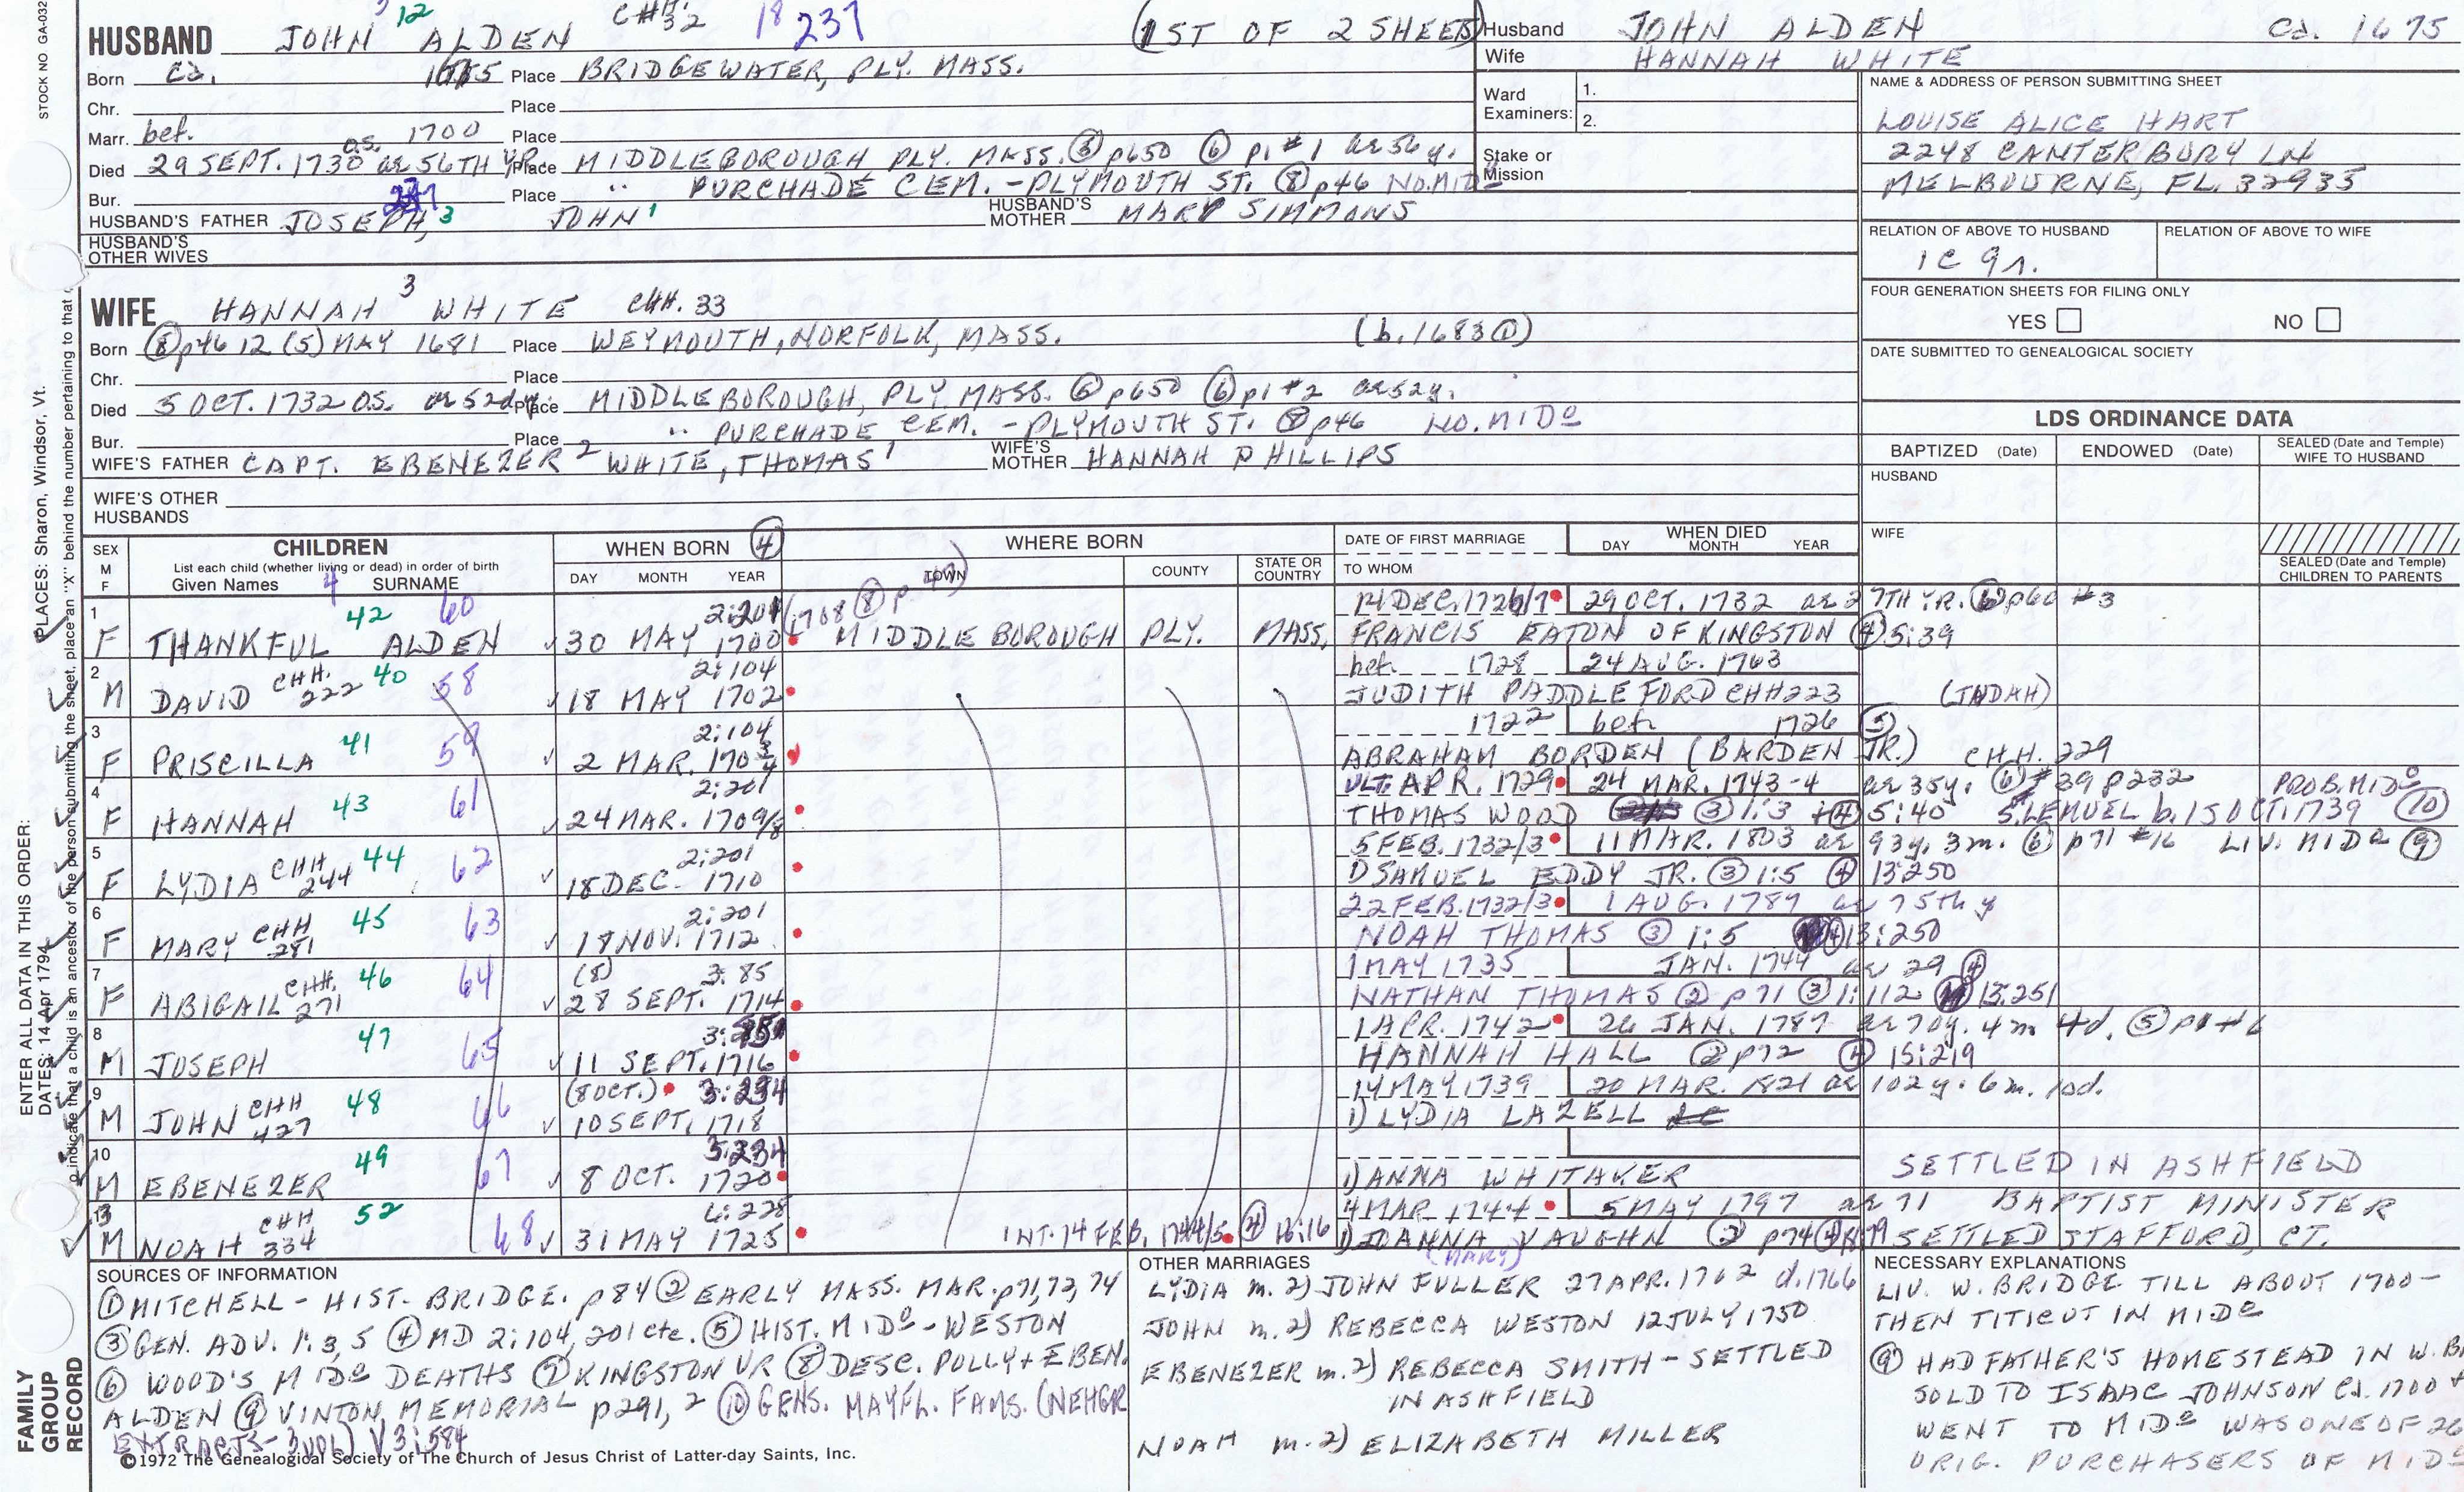 STOCK NO GA-032
HUSBAND JOHN 3 ALDEN 12 CHH 32 18 237 (1ST OF 2 SHEETS)
Born Ca. 1675 Place BRIDGEWATER, PLY. MASS.
Chr. Place
Marr. bef. 1700 Place
Died 29 SEPT. 1730 O.S. ae 56TH YR. Place MIDDLEBOROUGH PLY. MASS. p650 ⑥ p1 #1 ae 56 y.
Bur. Place " PURCHADE CEM. - PLYMOUTH ST. ⑧ p46 NO. MIDO
HUSBAND'S FATHER JOSEPH, JOHN 1 HUSBAND'S MOTHER MARY SIMMONS
HUSBAND'S OTHER WIVES
Husband JOHN ALDEN Ca. 1675
Wife HANNAH WHITE
Ward Examiners: 1.
2.
Stake or Mission
NAME & ADDRESS OF PERSON SUBMITTING SHEET
LOUISE ALICE HART
2248 CANTERBURY LN
MELBOURNE, FL. 32935
RELATION OF ABOVE TO HUSBAND RELATION OF ABOVE TO WIFE
1C 9r.
FOUR GENERATION SHEETS FOR FILING ONLY
YES NO
DATE SUBMITTED TO GENEALOGICAL SOCIETY
WIFE HANNAH 3 WHITE CHH. 33
Born ⑧ p46 12 (5) MAY 1681 Place WEYMOUTH, NORFOLK, MASS. (b. 1683 ①)
Chr. Place
Died 5 OCT. 1732 O.S. ae 52d y. Place MIDDLEBOROUGH, PLY MASS. p650 ⑥ p1 #2 ae 52 y.
Bur. Place " PURCHADE CEM. - PLYMOUTH ST. ⑧ p46 NO. MIDO
WIFE'S FATHER CAPT. EBENEZER 2 WHITE, THOMAS 1 WIFE'S MOTHER HANNAH PHILLIPS
WIFE'S OTHER HUSBANDS
LDS ORDINANCE DATA
BAPTIZED (Date) ENDOWED (Date) SEALED (Date and Temple) WIFE TO HUSBAND
HUSBAND
WIFE
SEALED (Date and Temple) CHILDREN TO PARENTS
SEX M F CHILDREN List each child (whether living or dead) in order of birth Given Names 4 SURNAME
WHEN BORN ④ DAY MONTH YEAR
WHERE BORN TOWN COUNTY STATE OR COUNTRY
DATE OF FIRST MARRIAGE TO WHOM
WHEN DIED DAY MONTH YEAR
1 42 60 2:201 (1708 ⑧ p. 47) 14 DEC. 1726/7 29 OCT. 1732 ae 27TH YR. ⑥ p60 #3
F THANKFUL ALDEN 30 MAY 1700 MIDDLEBOROUGH PLY. MASS. FRANCIS EATON OF KINGSTON ④ 5:39
2 CHH. 222 40 58 2:104 bef. 1728 24 AUG. 1763
M DAVID 18 MAY 1702 JUDITH PADDLEFORD CHH 223 (JUDAH)
3 41 59 2:104 1722 bef. 1726 ⑤
F PRISCILLA 2 MAR. 1703/4 ABRAHAM BORDEN (BARDEN JR.) CHH. 229
4 43 61 2:201 ULT. APR. 1729 24 MAR. 1743-4 ae 35 y. ⑥ #39 p232 PROB. MIDO
F HANNAH 24 MAR. 1709/8 THOMAS WOOD ③ 1:3 + ④ 5:40 S. LEMUEL b. 15 OCT. 1739 ⑩
5 CHH 244 44 62 2:201 5 FEB. 1732/3 11 MAR. 1803 ae 93 y. 3 m. ⑥ p71 #16 LIV. MIDO ⑨
F LYDIA 18 DEC. 1710 1) SAMUEL EDDY JR. ③ 1:5 ④ 13:250
6 CHH 281 45 63 2:201 22 FEB. 1732/3 1 AUG. 1787 ae 75th y
F MARY 18 NOV. 1712 NOAH THOMAS ③ 1:5 ④ 13:250
7 CHH. 271 46 64 (8) 3:85 1 MAY 1735 JAN. 1744 ae 29 ④
F ABIGAIL 28 SEPT. 1714 NATHAN THOMAS ② p71 ③ 1:112 13:251
8 47 65 1 APR. 1742 26 JAN. 1787 ae 70 y. 4 m 4 d. ⑤ p1 #6
M JOSEPH 11 SEPT. 1716 HANNAH HALL ② p72 ④ 15:219
9 CHH 427 48 66 (8 OCT.) 3:234 14 MAY 1739 20 MAR. 1821 ae 102 y. 6 m. 10 d.
M JOHN 10 SEPT. 1718 1) LYDIA LAZELL
10 49 67 3:234
M EBENEZER 8 OCT. 1720 1) ANNA WHITAKER SETTLED IN ASHFIELD
13 CHH 334 52 68 4 MAR 1744 5 MAY 1797 ae 71 BAPTIST MINISTER
M NOAH 31 MAY 1725 INT. 14 FEB. 1744/5 ④ 16:16 1) JOANNA (MARY) VAUGHN ② p74 SETTLED STAFFORD, CT.
SOURCES OF INFORMATION
① MITCHELL - HIST. BRIDGE. p84 ② EARLY MASS. MAR. p71, 72, 74
③ GEN. ADV. 1:3, 5 ④ MD 2:104, 201 etc. ⑤ HIST. MIDO - WESTON
⑥ WOOD'S MIDO DEATHS ⑦ KINGSTON VR ⑧ DESC. POLLY + EBEN.
ALDEN ⑨ VINTON MEMORIAL p291, 2 ⑩ GENS. MAYFL. FAMS. (NEHGR
EXTRACTS - 3 VOL) V3:584
©1972 The Genealogical Society of The Church of Jesus Christ of Latter-day Saints, Inc.
OTHER MARRIAGES
LYDIA m. 2) JOHN FULLER 27 APR. 1762 d. 1766
JOHN m. 2) REBECCA WESTON 12 JULY 1750
EBENEZER m. 2) REBECCA SMITH - SETTLED
IN ASHFIELD
NOAH m. 2) ELIZABETH MILLER
NECESSARY EXPLANATIONS
LIV. W. BRIDGE TILL ABOUT 1700 -
THEN TITICUT IN MIDO
⑨ HAD FATHER'S HOMESTEAD IN W. B
SOLD TO ISAAC JOHNSON Ca. 1700 +
WENT TO MIDO WAS ONE OF 26
ORIG. PURCHASERS OF MIDO
ENTER ALL DATA IN THIS ORDER:
DATES: 14 Apr 1794
PLACES: Sharon, Windsor, Vt.
o indicate that a child is an ancestor of the person submitting the sheet, place an "X" behind the number pertaining to that c
FAMILY
GROUP
RECORD